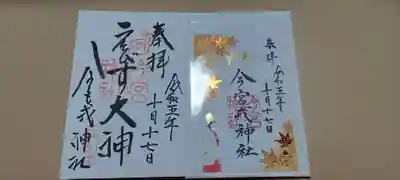 奉拝
令和五年
十月十七日
ゑびす大神
今宮戎神社
奉拝
令和五年
十月十七日
今宮戎神社